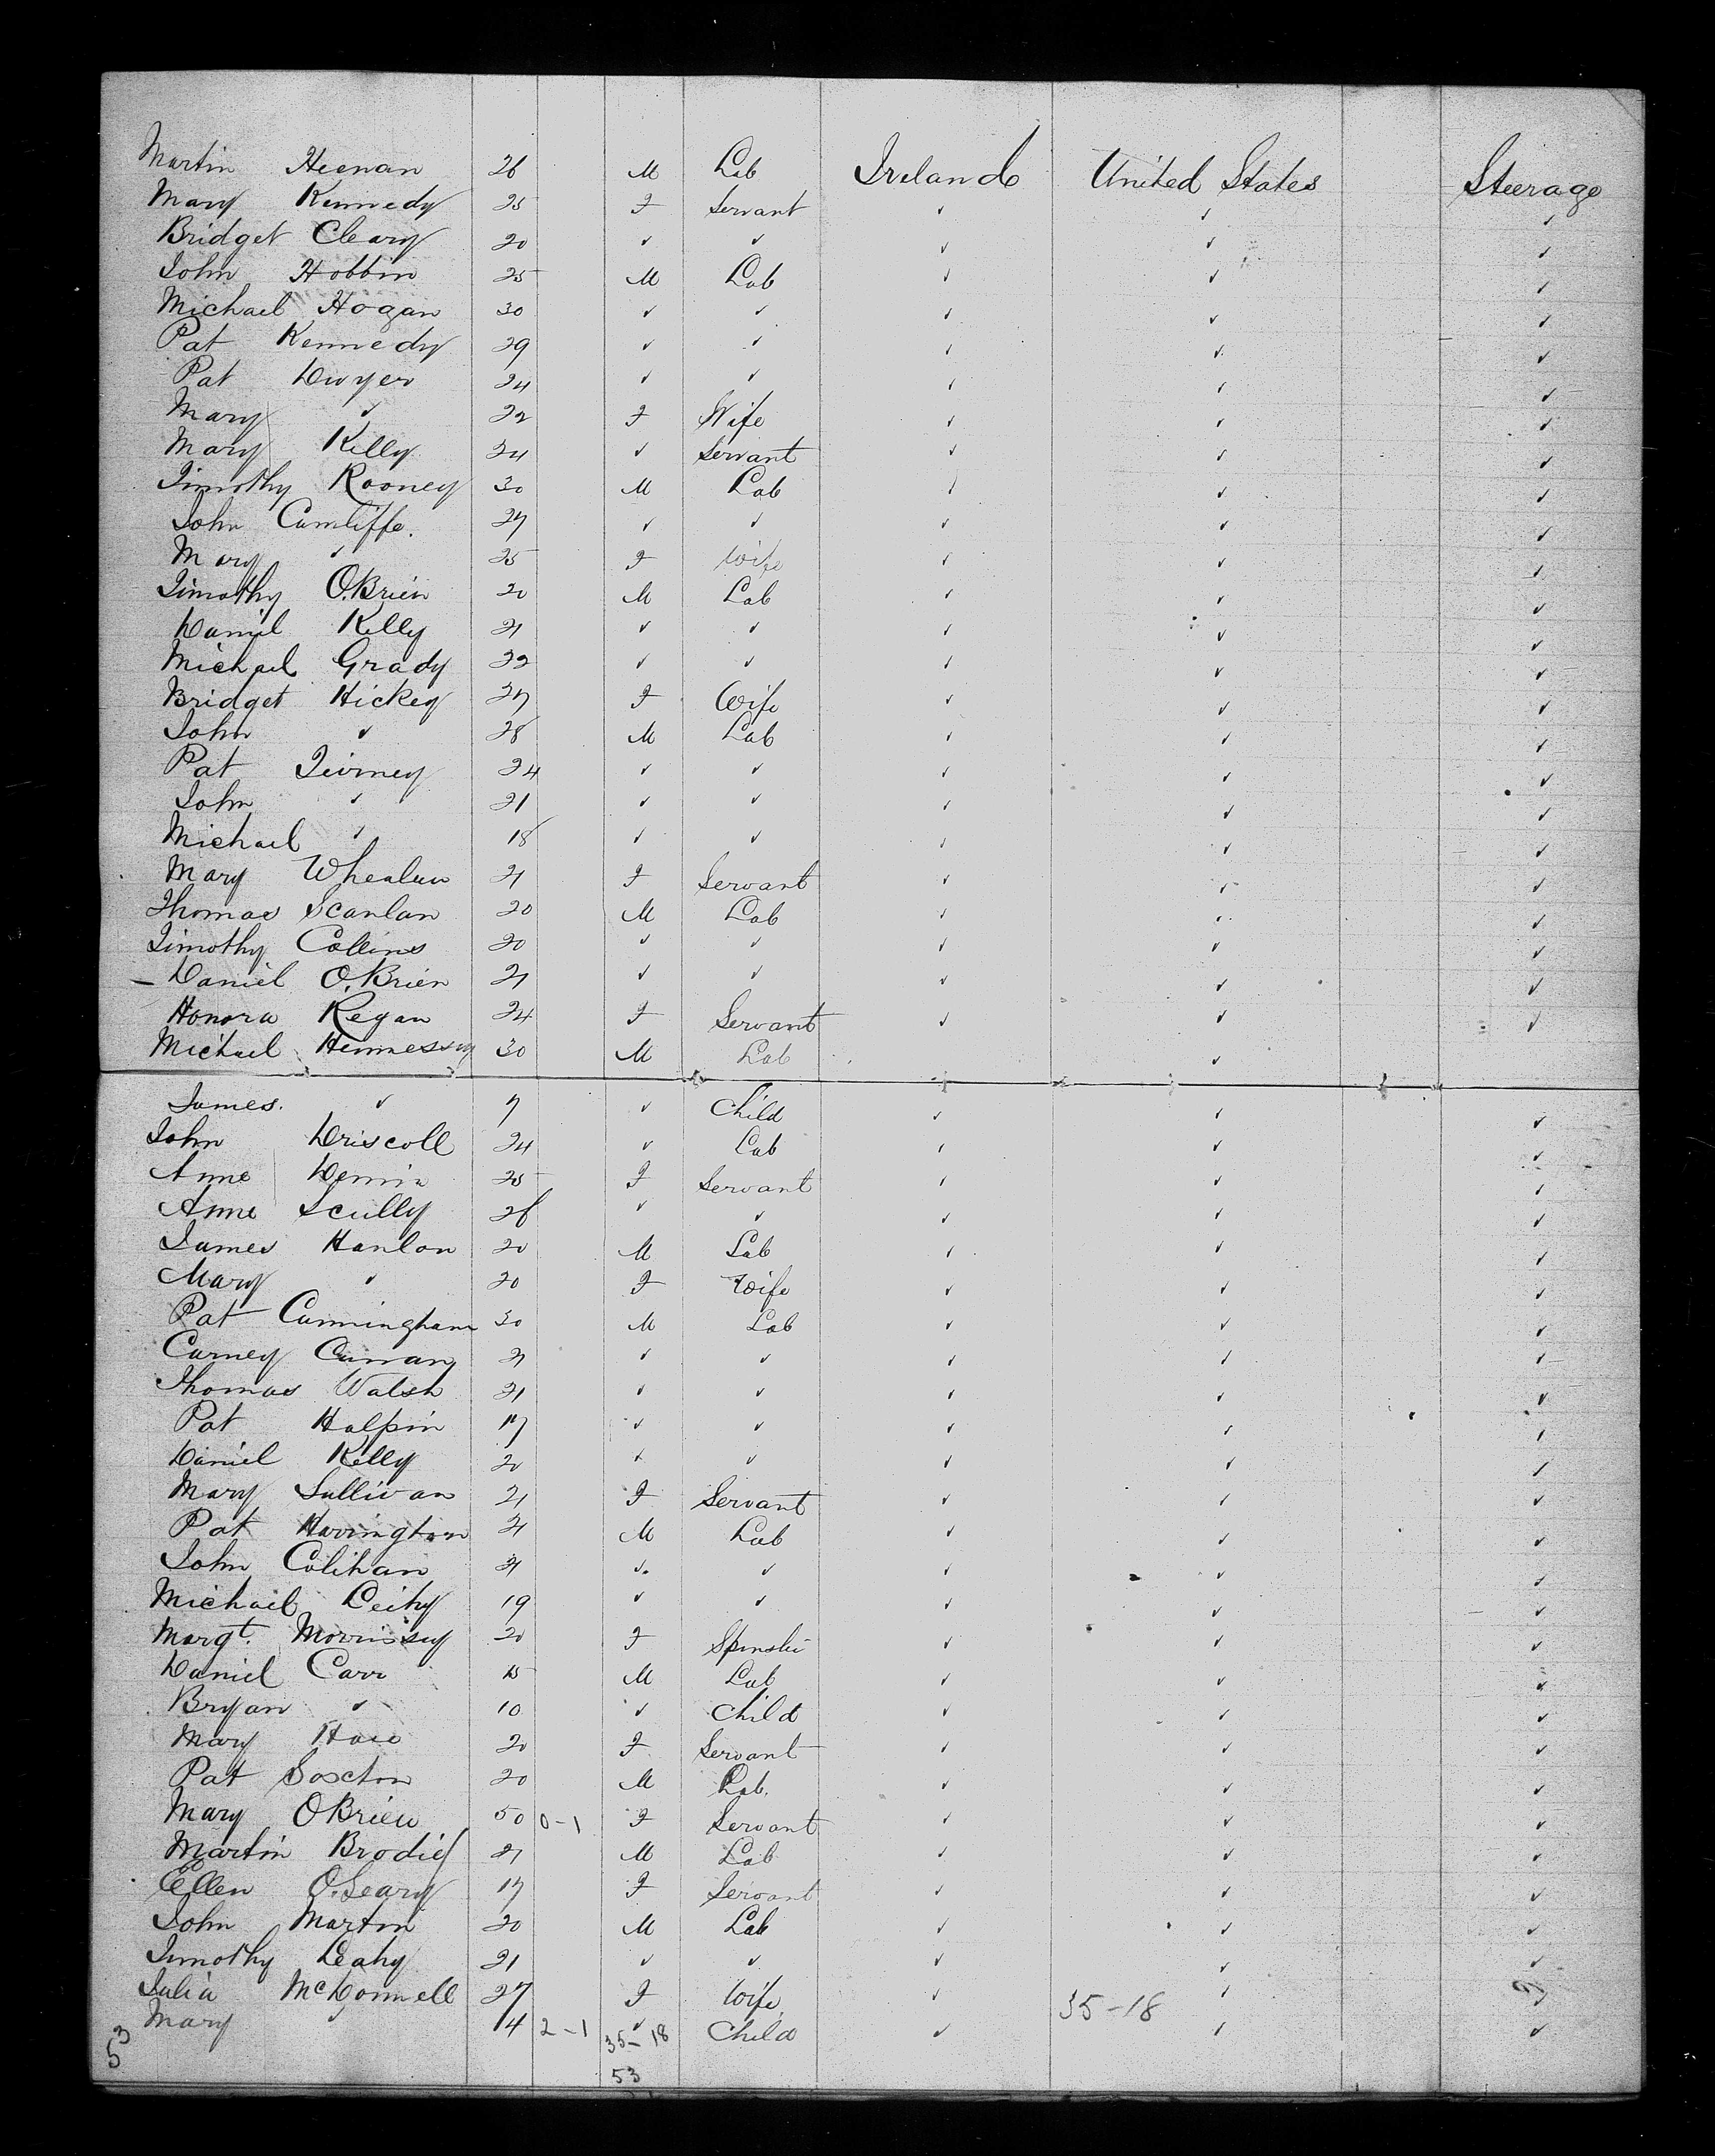 Martin Heenan 26 M Lab Ireland United States Steerage
Mary Kennedy 25 F Servant ✓ ✓ ✓
Bridget Cleary 20 ✓ ✓ ✓ ✓ ✓
John Hobbin 25 M Lab ✓ ✓ ✓
Michael Hogan 30 ✓ ✓ ✓ ✓ ✓
Pat Kennedy 29 ✓ ✓ ✓ ✓ ✓
Pat Dwyer 24 ✓ ✓ ✓ ✓ ✓
Mary ✓ 22 F Wife ✓ ✓ ✓
Mary Kelly 24 ✓ Servant ✓ ✓ ✓
Timothy Rooney 30 M Lab ✓ ✓ ✓
John Cunliffe. 27 ✓ ✓ ✓ ✓ ✓
Mary ✓ 25 F Wife ✓ ✓ ✓
Timothy O.Brien 20 M Lab ✓ ✓ ✓
Daniel Kelly 21 ✓ ✓ ✓ ✓ ✓
Michael Grady 22 ✓ ✓ ✓ ✓ ✓
Bridget Hickey 27 F Wife ✓ ✓ ✓
John ✓ 28 M Lab ✓ ✓ ✓
Pat Tierney 24 ✓ ✓ ✓ ✓ ✓
John ✓ 21 ✓ ✓ ✓ ✓ ✓
Michael ✓ 18 ✓ ✓ ✓ ✓ ✓
Mary Whealan 21 F Servant ✓ ✓ ✓
Thomas Scanlan 20 M Lab ✓ ✓ ✓
Timothy Collins 20 ✓ ✓ ✓ ✓ ✓
– Daniel O.Brien 21 ✓ ✓ ✓ ✓ ✓
Honora Regan 24 F Servant ✓ ✓ ✓
Michael Hennessy 30 M Lab ✓
James. ✓ 7 ✓ Child ✓ ✓ ✓
John Driscoll 24 ✓ Lab ✓ ✓ ✓
Anne 25 F Servant ✓ ✓ ✓
Anne Scully 26 ✓ ✓ ✓ ✓ ✓
James Hanlon 20 M Lab ✓ ✓ ✓
Mary ✓ 20 F Wife ✓ ✓ ✓
Pat Cunningham 30 M Lab ✓ ✓ ✓
Carney Curran 21 ✓ ✓ ✓ ✓ ✓
Thomas Walsh 21 ✓ ✓ ✓ ✓ ✓
Pat Halpin 17 ✓ ✓ ✓ ✓ ✓
Daniel Kelly 20 ✓ ✓ ✓ ✓ ✓
Mary Sullivan 21 F Servant ✓ ✓ ✓
Pat Harrington 21 M Lab ✓ ✓ ✓
John Colihan 21 ✓ ✓ ✓ ✓ ✓
Michael Leihy 19 ✓ ✓ ✓ ✓ ✓
Margt. Morrissey 20 F Spinster ✓ ✓ ✓
Daniel Carr 15 M Lab ✓ ✓ ✓
Bryan ✓ 10 ✓ Child ✓ ✓ ✓
Mary 20 F Servant ✓ ✓ ✓
Pat Soxton 20 M Lab. ✓ ✓ ✓
Mary OBrien 50 0-1 F Servant ✓ ✓ ✓
Martin Brodie 21 M Lab ✓ ✓ ✓
Ellen O.Leary 17 F Servant ✓ ✓ ✓
John Martin 20 M Lab ✓ ✓ ✓
Timothy Leahy 21 ✓ ✓ ✓ ✓ ✓
Julia McDonnell 27 F Wife ✓ ✓ ✓
35-18
Mary ✓ 4 2-1 ✓ Child ✓ ✓ ✓
53 35-18
53